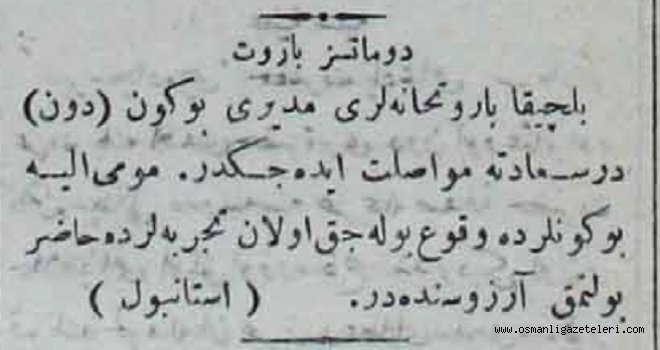 دوماتسز باروت
بلچيقا باروتخانه‌لری مديری بوکون (دون)
درسعادته مواصلت ايده‌جکدر. مومی اليه
بوکونلرده وقوع بوله‌جق اولان تجربه‌لرده حاضر
بولنمق آرزوسنده‌در. (استانبول)
www.osmanligazeteleri.com